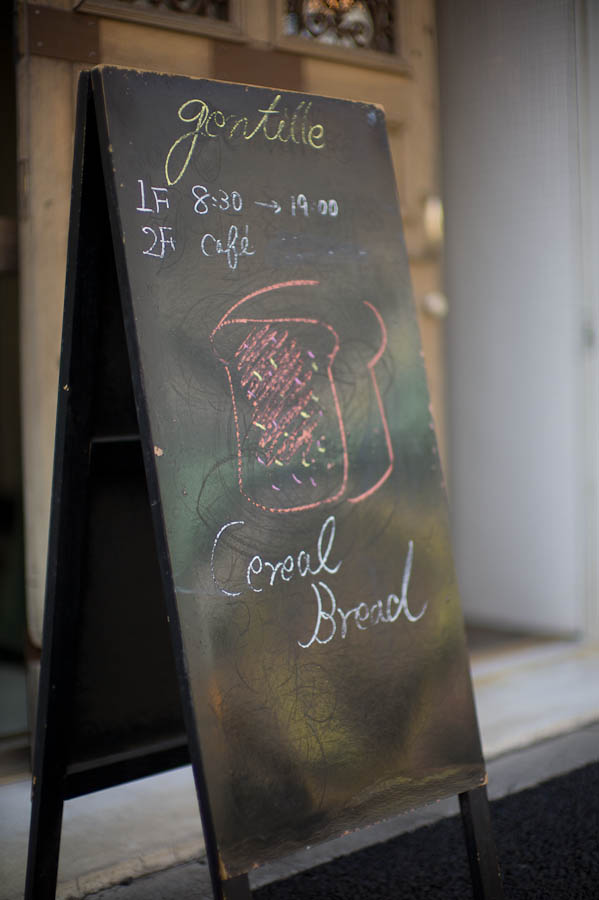 gentille
1F 8:30 → 19:00
2F café
Cereal
Bread